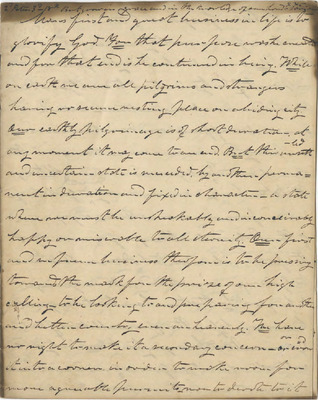 Mans first and great business in life is to
glorify God. For that purpose was he created
and for that end is he continued in being. While
on earth we are all pilgrims and strangers
having no secure resting place or abiding city
Our earthly pilgrimage is of short duration, at
any moment it may come to an end. But this
and uncertain state is succeeded by another perma-
nent in duration and fixed in character – a state
where we must be unspeakably and inconceivably
happy or miserable to all eternity. Our first
and supreme business therefore is to be pressing
towards the mark for the prize of our high
calling – to be looking to and preparing for another
and better country even an heavenly. We have
no right to make it a secondary concern – or
it into a corner in order to make room for
more agreeable pursuits, nor to devote to it